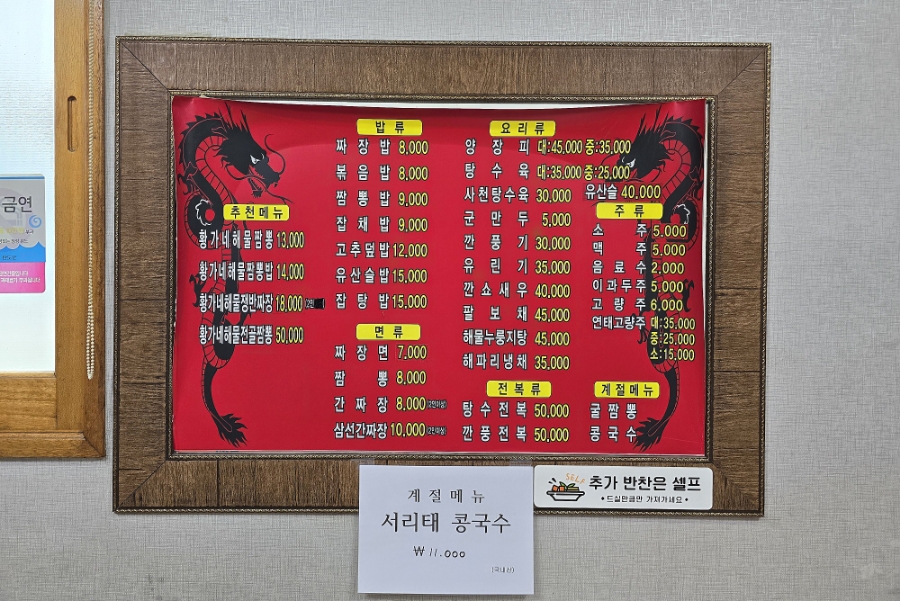 금연
추천메뉴
황가네해물짬뽕 13,000
황가네해물짬뽕밥 14,000
황가네해물쟁반짜장 18,000
황가네해물전골짬뽕 50,000
밥류
짜장밥 8,000
볶음밥 8,000
짬뽕밥 9,000
잡채밥 9,000
고추덮밥 12,000
유산슬밥 15,000
잡탕밥 15,000
면류
짜장면 7,000
짬뽕 8,000
간짜장 8,000 (2인이상)
삼선간짜장 10,000 (2인이상)
요리류
양장피 대:45,000 중:35,000
탕수육 대:35,000 중:25,000
사천탕수육 30,000
유산슬 40,000
군만두 5,000
깐풍기 30,000
유린기 35,000
깐쇼새우 40,000
팔보채 45,000
해물누룽지탕 45,000
해파리냉채 35,000
주류
소주 5,000
맥주 5,000
음료수 2,000
이과두주 5,000
고량주 6,000
연태고량주 대:35,000
중:25,000
소:15,000
전복류
탕수전복 50,000
깐풍전복 50,000
계절메뉴
굴짬뽕
콩국수
계절메뉴
서리태 콩국수
₩ 11.000
(국내산)
SELF
추가 반찬은 셀프
• 드실만큼만 가져가세요 •